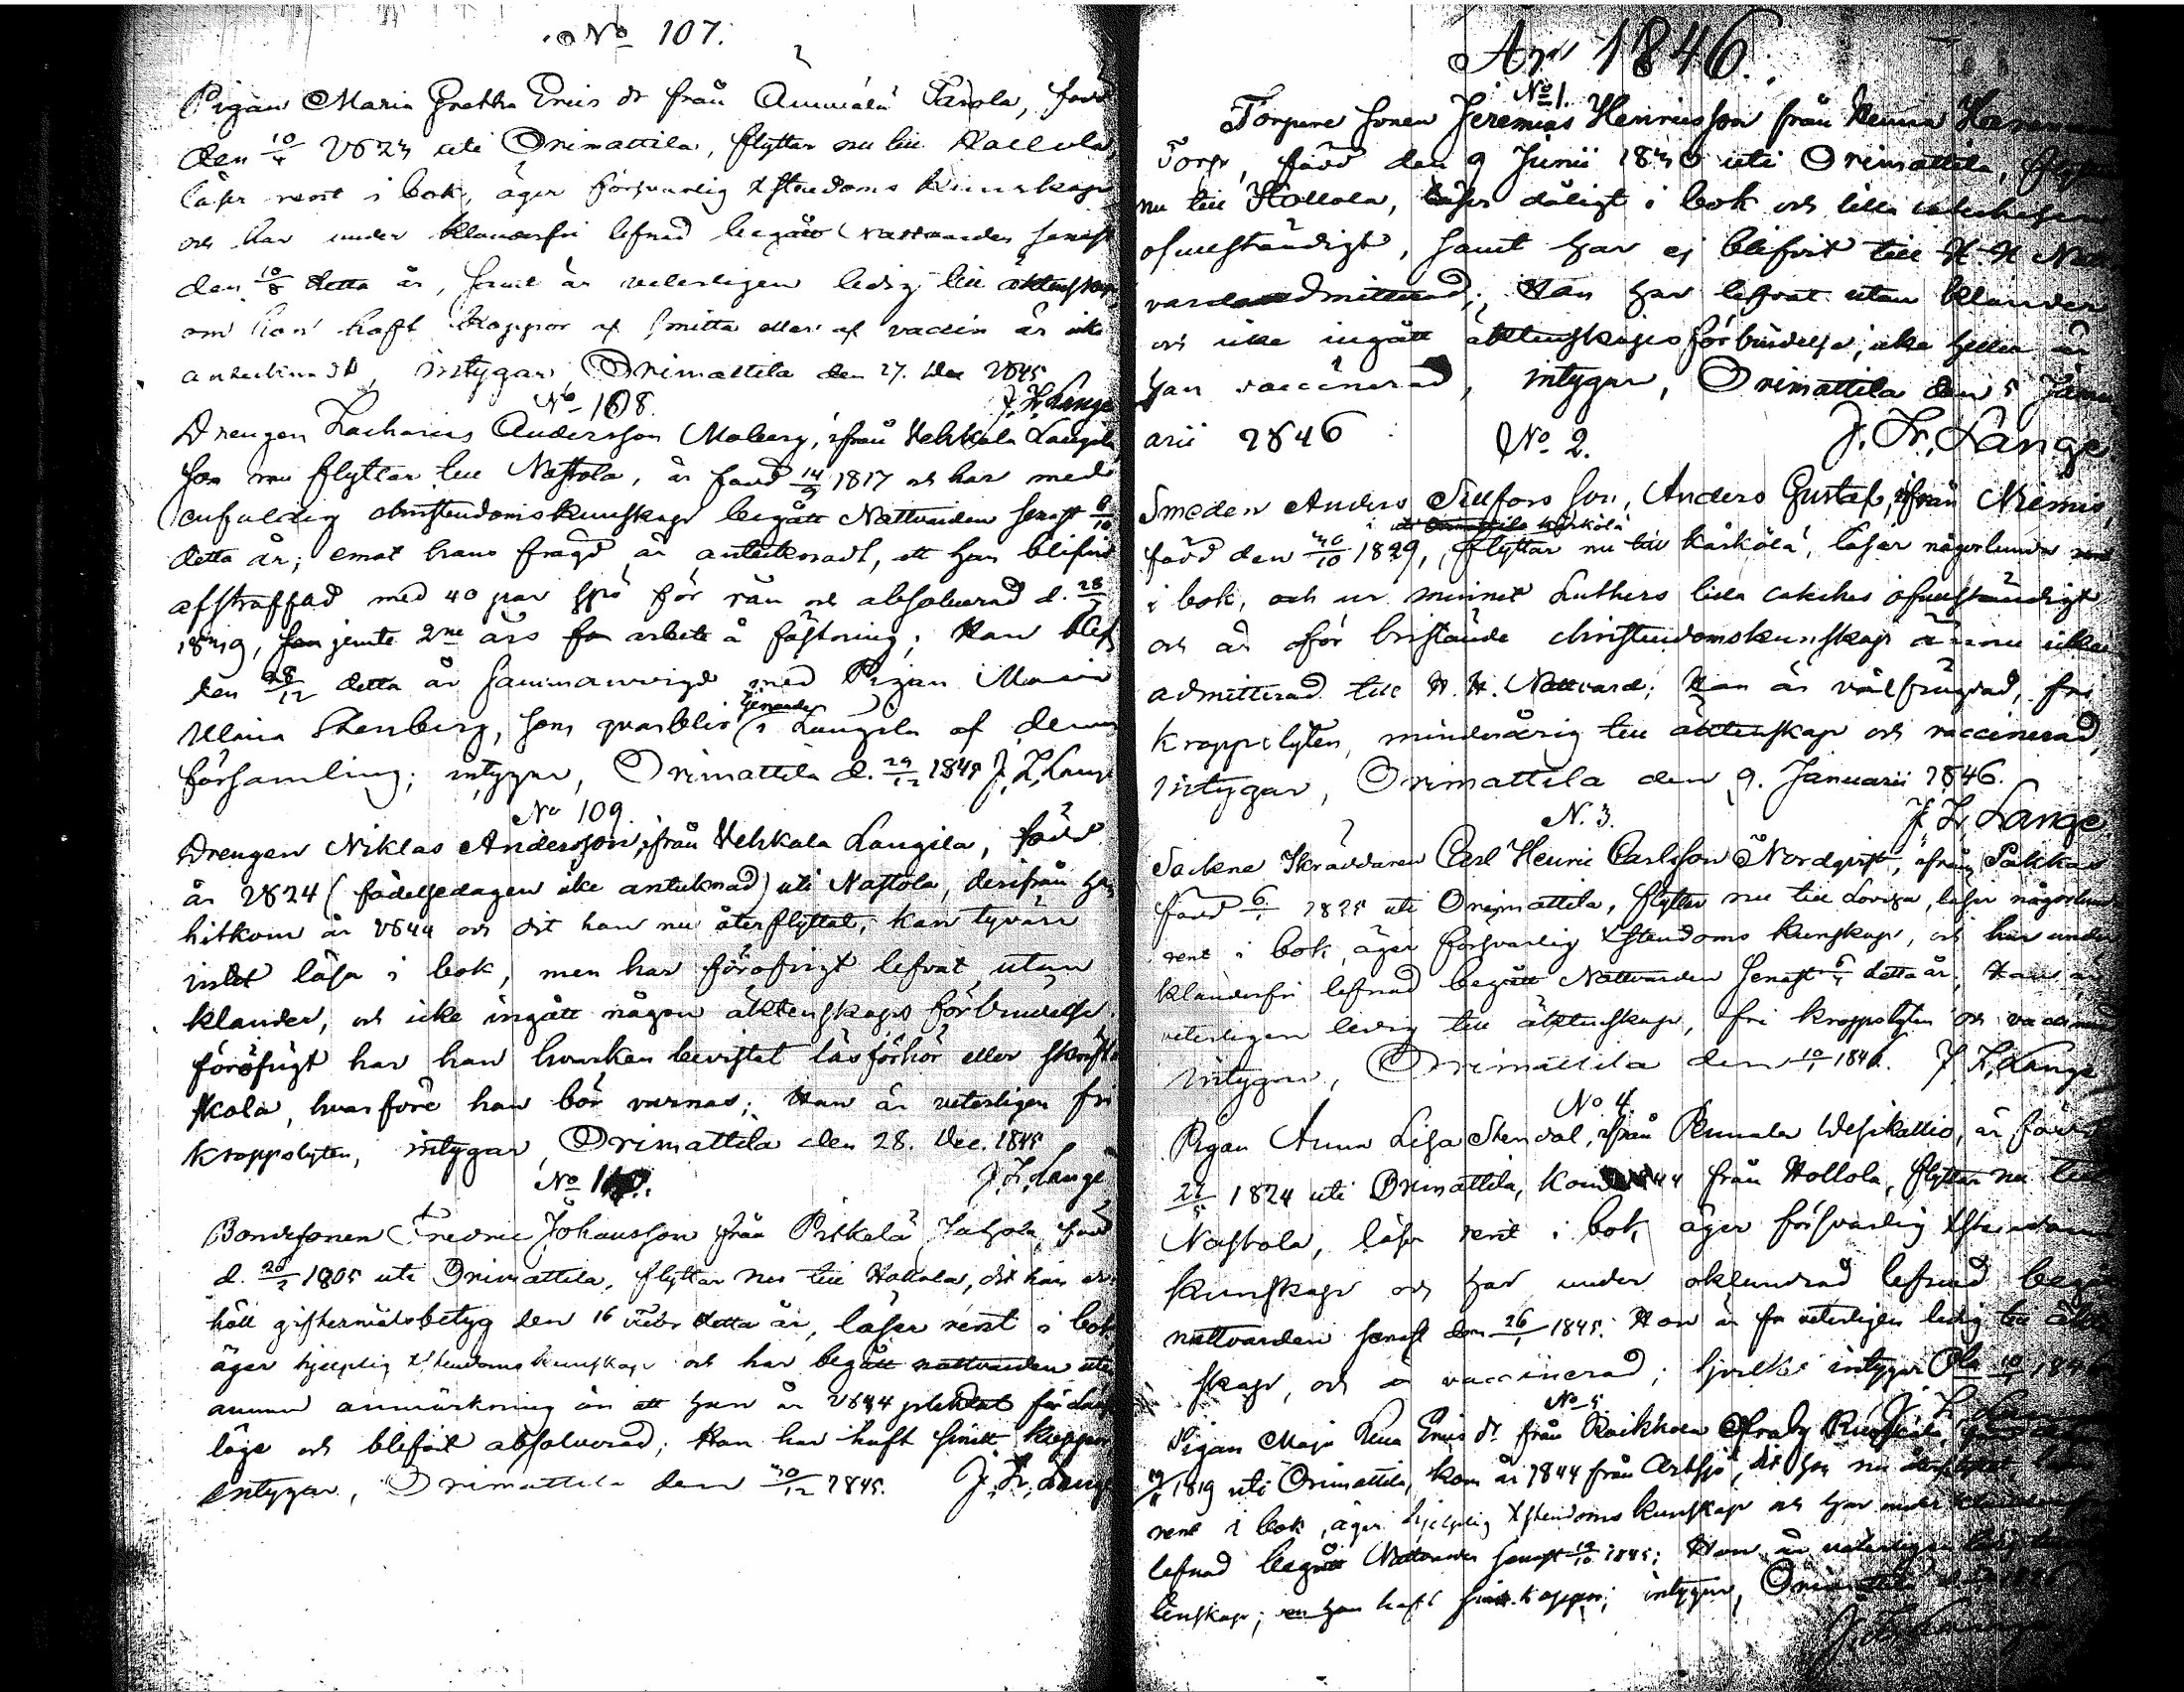 No 107.
Pigan Maria Gretha Erics dr från Ammälä Tarola, född
den 10/4 1823 uti Orimattila, flyttar nu till Hollola,
läser rent i bok, äger försvarlig Xstendoms kunskap
och har under klanderfri lefnad begått Nattvarden senast
den 10/8 detta år, samt är veterligen ledig till äktenskap,
om hon haft koppor af smitta eller af vaccin är icke
antecknadt, intygar, Orimattila den 27. Dec 1845
J. Fr. Lange
No 108.
Drengen Zacharias Andersson Malberg, ifrån Wehkala Laugila
som nu flyttar till Nastola, är född 14/9 1817 och har med
enfaldig christendomskunskap begått Nattvarden senast 6/10
detta år; emot hans frägd är antecknadt, att han blifvit
afstraffad med 40 par spö för rån och absolverad d. 28/7
1839, jemte 2ne års arbete å fästning; Han blef
den 28/12 detta år sammanvigd med Pigan Maria
Ulrica Stenberg, som qvarblir tjenande i Laugila af denna
församling; intygar, Orimattila d. 29/12 1845 J. Fr. Lange
No 109.
Drengen Niklas Andersson, ifrån Wehkala Laugila, född
år 1824 (födelsedagen icke antecknad) uti Nastola, derifrån han
hitkom år 1844 och dit han nu återflyttat, kan tyvärr
intet läsa i bok, men har föröfrigt lefvat utan
klander, och icke ingått någon äktenskaps förbindelse.
föröfrigt har han hvarken bevistat läsförhör eller skrift
skola, hvarföre han bör varnas; Han är veterligen fri
kroppslyten, intygar, Orimattila den 28. Dec. 1845
J. Fr. Lange
No 110.
Bondesonen Fredric Johansson från Pirkola, född
d. 20/2 1805 uti Orimattila, flyttar nu till Hollola, dit han er-
höll giftermålsbetyg den 16 Febr detta år, läser rent i bok
äger hjelplig Xstendoms kunskap och har begått nattvarden utan
annan anmärkning än att han år 1844 pliktat för
läge och blifvit absolverad; Han har haft smitt koppor
intygar, Orimattila den 30/12 1845. J. Fr. Lange
År 1846.
No 1.
Torpare sonen Jeremias Henricsson från Kenna
Torp, född den 9 Junii 1830 uti Orimattila, flyttar
nu till Hollola, läser dåligt i bok och lilla catechesen
ofullständigt, samt har ej blifvit till H. H. Natt-
vard admitterad; Han har lefvat utan klander
och icke ingått äktenskapsförbindelse; icke heller är
han vaccinerad, intygar, Orimattila den 5 Janu-
arii 1846
J. Fr. Lange
No 2.
Smeden Anders Sillfors son, Anders Gustaf, ifrån Niemis,
född den 30/10 1829, i Kärkölä flyttar nu till Kärkölä, läser någorlunda rent
i bok, och ur minnet Luthers lilla cateches ofullständigt
och är för bristande christendomskunskap ännu icke
admitterad till H. H. Nattvard; Han är välfrägdad, fri
kroppslyten, minderårig till äktenskap och vaccinerad,
intygar, Orimattila den 9. Januarii 1846.
J. Fr. Lange
N. 3.
Sockne Skräddaren Carl Henric Carlsson Nordqvist, ifrån Pakkas
född 6/1 1825 uti Orimattila, flyttar nu till Lovisa, läser någorlunda
rent i bok, äger försvarlig Xstendoms kunskap, och har under
klanderfri lefnad begått Nattvarden senast 6/4 detta år; Han är
veterligen ledig till äktenskap, fri kroppslyten och vaccinerad
intygar, Orimattila den 10/1 1846. J. Fr. Lange
No 4.
Pigan Anna Lisa Stendal, ifrån Pennala Wesikallio, är född
22/5 1824 uti Orimattila, kom 1844 från Hollola, flyttar nu till
Nastola, läser rent i bok, äger försvarlig Xstendoms
kunskap och har under oklandrad lefnad begått
nattvarden senast den 26/ 1845. Hon är fri veterligen ledig till äkten
skap, och är vaccinerad; hvilket intygar 10/1 1846
No 5
Pigan Maja Lena Erics dr från Raikkola
19/11 1819 uti Orimattila, kom år 1844 från Artsjö, dit hon nu återflyttat, läser
rent i bok, äger hjelplig Xstendoms kunskap och har under
lefnad begått Nattvarden senast 19/10 1845; Hon är veterligen ledig till
tenskap; han haft smitt koppor; intygar, Orimattila
J. Fr. Lange